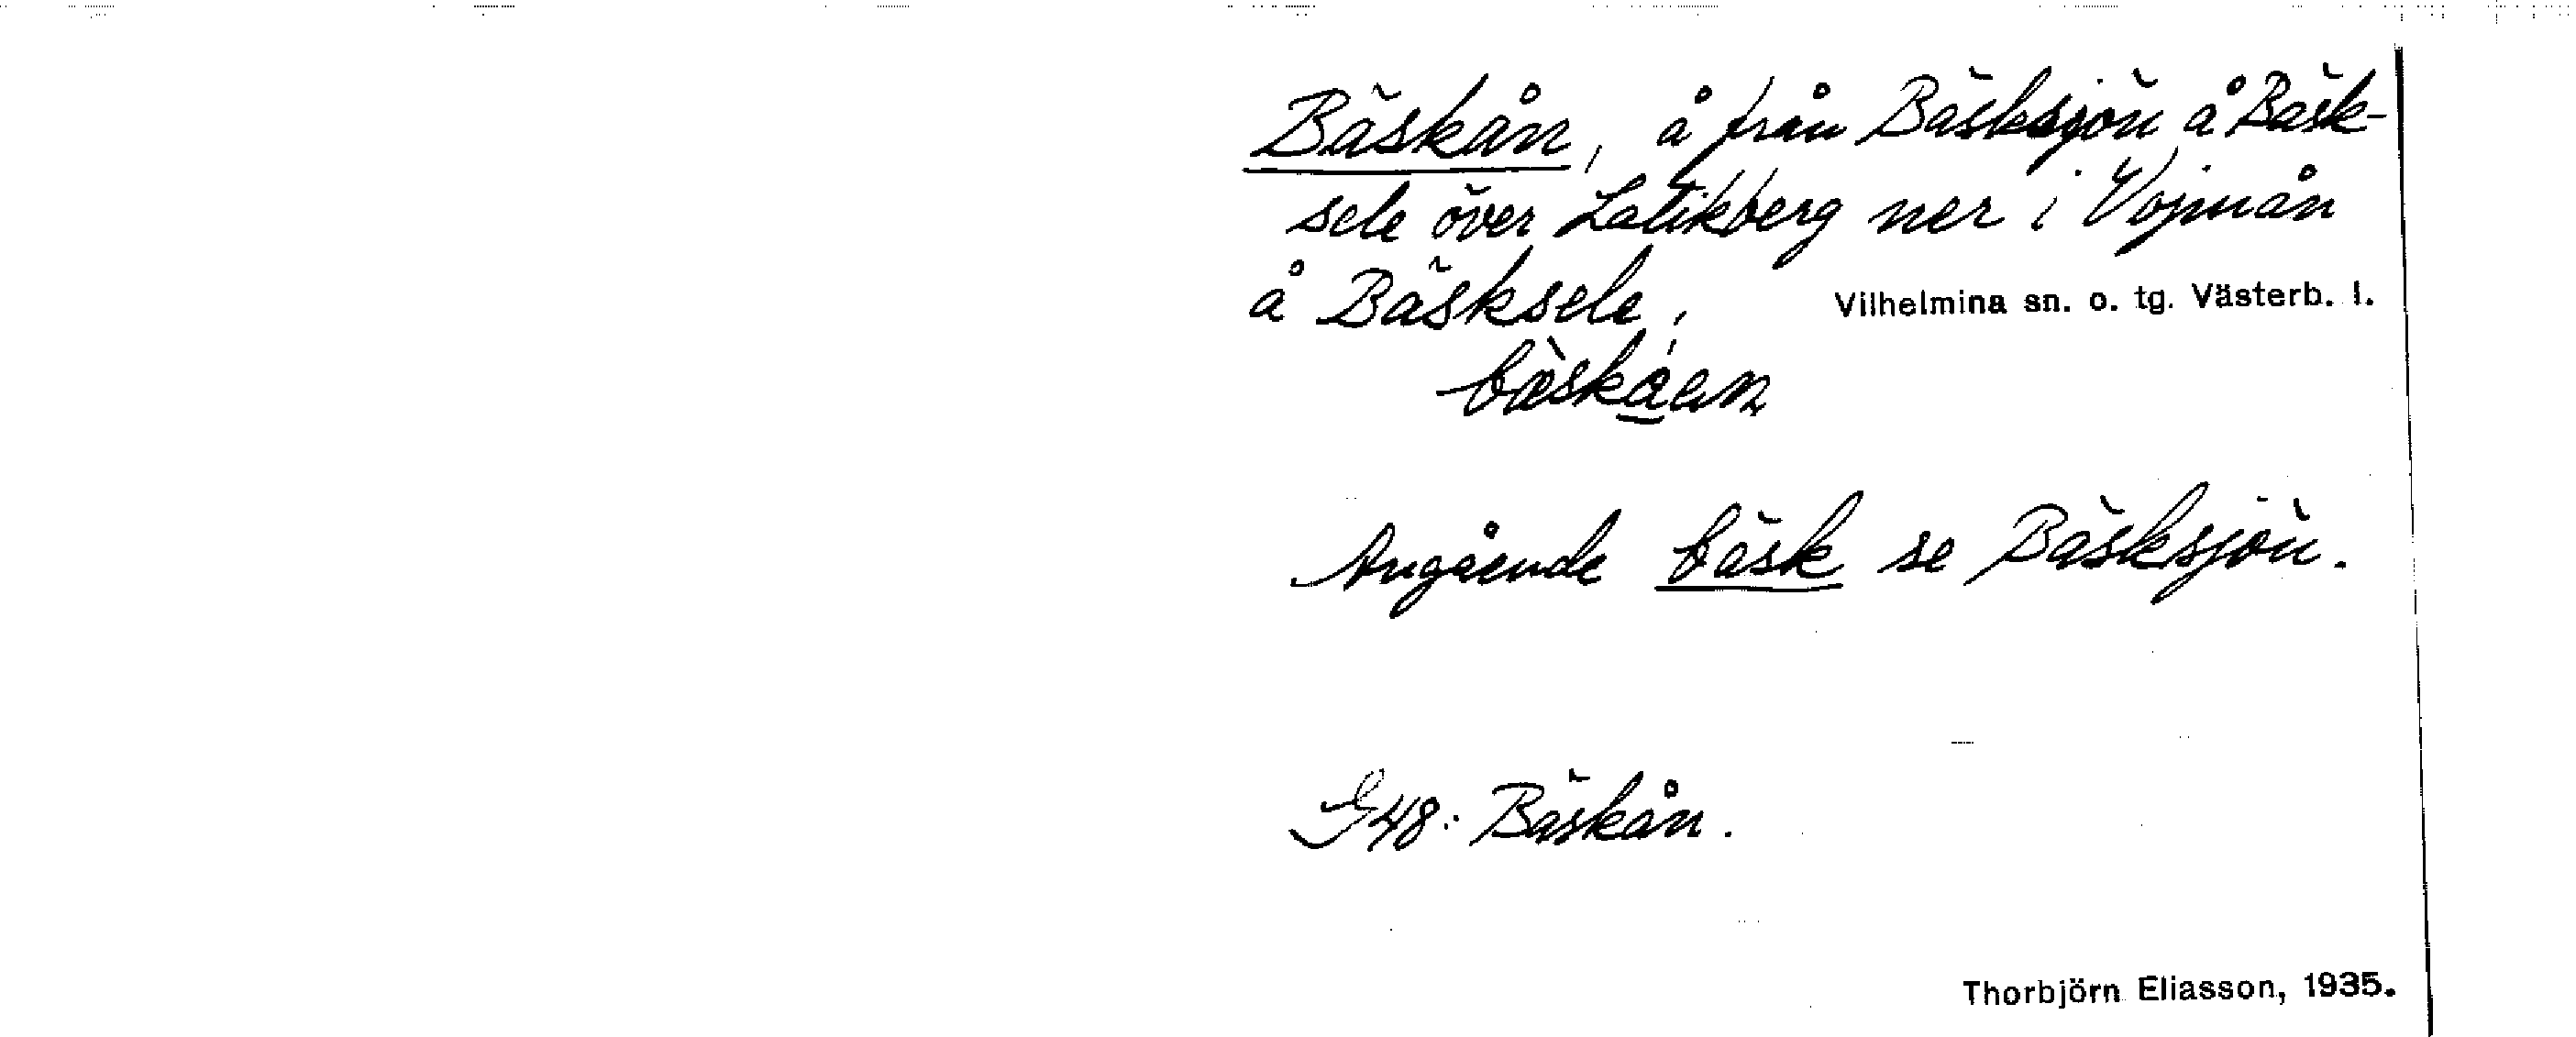 Bäskån, å från Bäsksjön å Bäsk-
sele över Latikberg ner i Vojmån
å Bäsksele, Vilhelmina sn. o. tg. Västerb. l.
Angående bäsk se Bäsksjön.
G48: Bäskån.
Thorbjörn Eliasson, 1935.